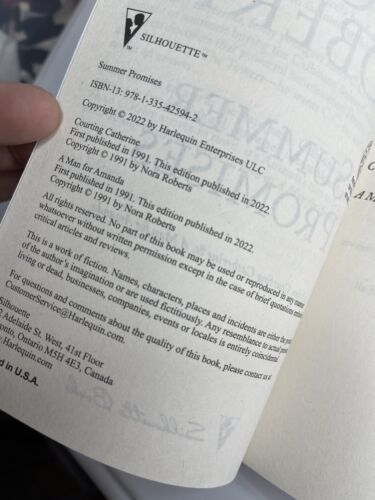 SILHOUETTE™
Summer Promises
ISBN-13: 978-1-335-42594-2
Copyright © 2022 by Harlequin Enterprises ULC
Courting Catherine
First published in 1991. This edition published in 2022.
Copyright © 1991 by Nora Roberts
A Man for Amanda
First published in 1991. This edition published in 2022.
Copyright © 1991 by Nora Roberts
All rights reserved. No part of this book may be used or reproduced in any
whatsoever without written permission except in the case of brief quotations
critical articles and reviews.
This is a work of fiction. Names, characters, places and incidents are either the
of the author's imagination or are used fictitiously. Any resemblance to actual
living or dead, businesses, companies, events or locales is entirely coincidental.
For questions and comments about the quality of this book, please contact us at
CustomerService@Harlequin.com.
Silhouette
Adelaide St. West, 41st Floor
Ontario M5H 4E3, Canada
Harlequin.com
in U.S.A.